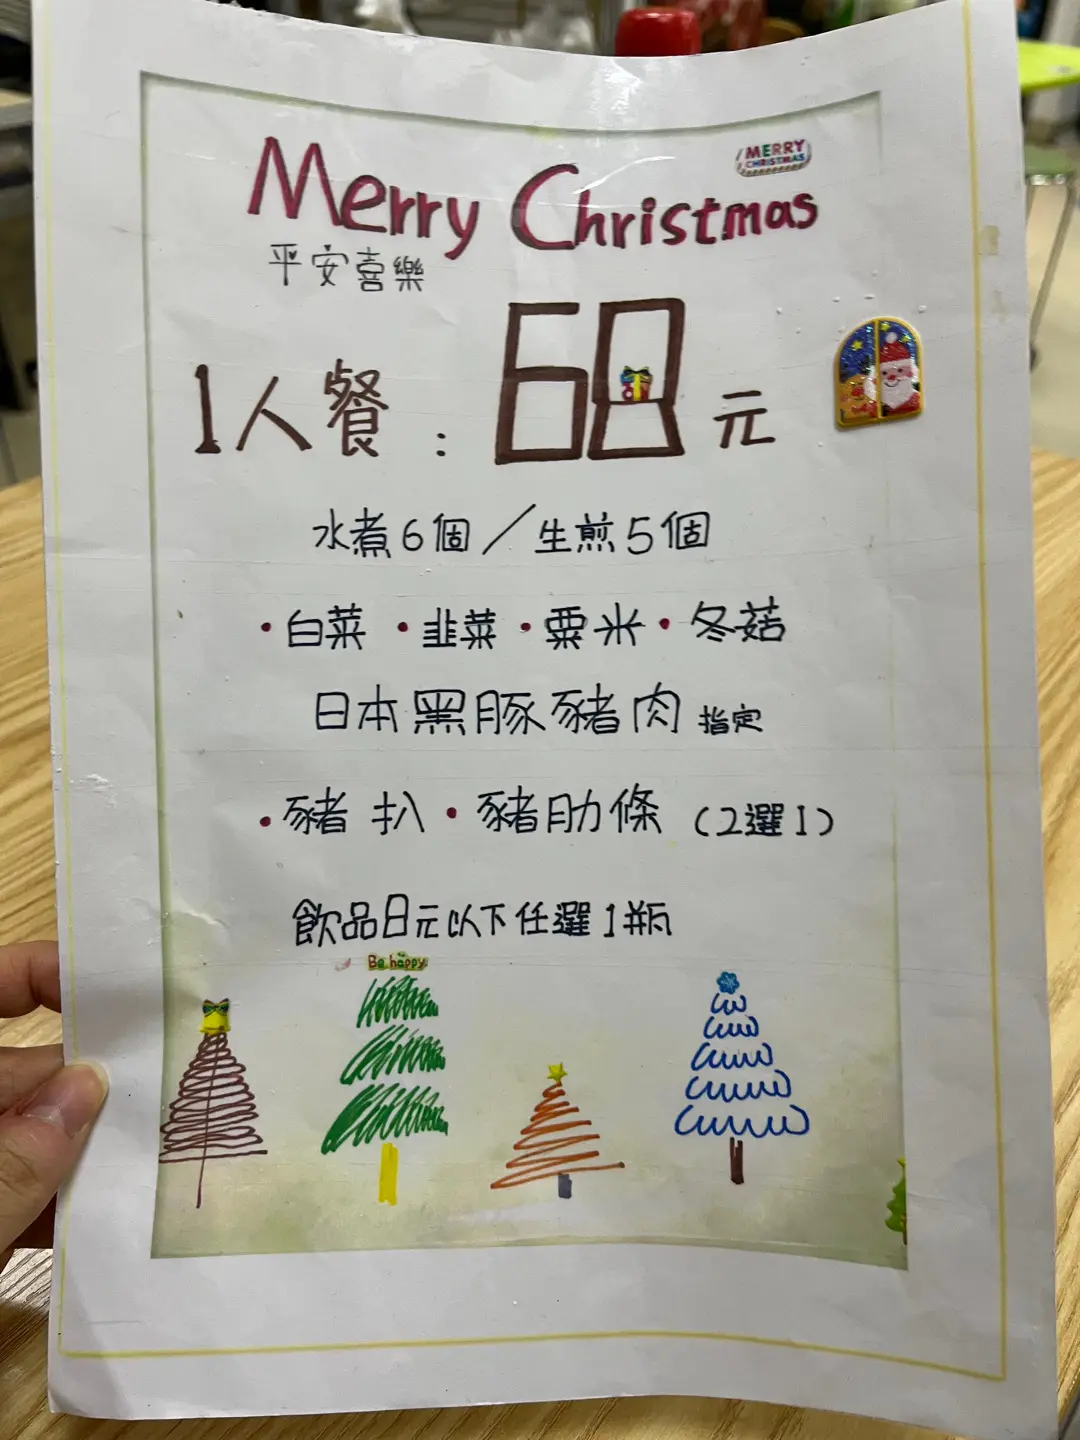 Merry Christmas
MERRY
CHRISTMAS
平安喜樂
1人餐：68元
水煮6個／生煎5個
・白菜・韭菜・粟米・冬菇
日本黑豚豬肉 指定
・豬扒・豬肋條（2選1）
飲品8元以下任選1瓶
Be happy